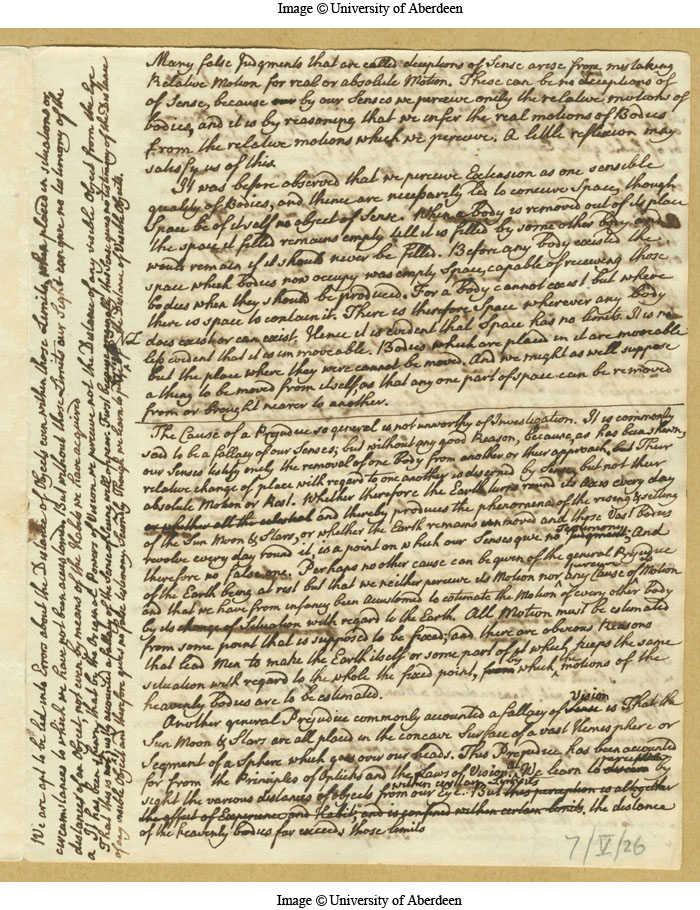 Image © University of Aberdeen
Many false Judgments that are called deceptions of Sense arise from mistaking
Relative Motion for real or absolute Motion. These can be no deceptions of
of Sense, because our by our Senses we perceive only the relative motions of
bodies, and it is by reasoning that we infer the real motions of Bodies
from the relative motions which we perceive. A little reflexion may
satisfy us of this.
It was before observed that we perceive Extension as one sensible
quality of Bodies, and thence are necessarily led to conceive Space, though
Space be of itself no object of Sense. When a body is removed out of its place
the space it filled remains empty till it is filled by some other body and
would remain if it should never be filled. Before any body existed the
space which bodies now occupy was empty Space, capable of receiving those
bodies when they should be produced. For a body cannot exist but where
there is space to contain it. There is therefore Space wherever any body
does exist or can exist. Hence it is evident that Space has no limits. It is no
less evident that it is immoveable. Bodies which are placed in it are moveable
but the place where they were cannot be moved. And we might as well suppose
a thing to be moved from itself, as that any one part of space can be removed
from or brought nearer to another.
The Cause of a Prejudice so general is not unworthy of Investigation. It is commonly
said to be a fallacy of our Senses; but without any good Reason, because, as has been shewn,
our Senses testify onely the removal of one Body from another or their approach, but Their
relative change of place with regard to one another is discerned by Sense, but not their
absolute Motion or Rest. Whether therefore the Earth turns round its Axis every day
or whether all the celestial and thereby produces the phenomena of the rising & setting
of the Sun Moon & Stars, or whether the Earth remains unmoved and those vast bodies
revolve every day round it, is a point on which our Senses give no testimony judgment; And
therefore no false one. Perhaps no other cause can be given of the general Prejudice
of the Earth being at rest but that we neither perceive its Motion nor perceive any Cause of Motion
and that we have from infancy been accustomed to estimate the Motion of every other body
by its change of Situation with regard to the Earth. All Motion must be estimated
from some point that is supposed to be fixed; and there are obvious Reasons
that lead Men to make the Earth itself or some part of it which keeps the same
situation with regard to the whole the fixed point, from by which the motions of the
heavenly bodies are to be estimated.
Another general Prejudice commonly accounted a fallacy of Sense Vision is That the
Sun Moon & Stars are all placed in the concave Surface of a vast Hemisphere or
Segment of a Sphere which goes over our heads. This Prejudice has been accounted
for from the Principles of Opticks and the Laws of Vision. We learn to perceive by
sight the various distances of Objects from our Eye within certain limits. But this perception is altogether
the effect of Experience and Habit, and is confined within certain limits, the distance
of the heavenly bodies far exceeds those limits
7/V/26
We are apt to be led into Errors about the Distance of Objects even within those Limits, when placed in situations or
circumstances to which we have not been accustomed. But without those Limits our Sight can give no testimony of the
distances of an Object, not even by means of the Habits we have acquired
It has been shewn, that by the Original Powers of Vision we perceive not the Distance of any visible Object from the Eye
That this is not justly accounted a fallacy of the Sense of Seeing will appear. First because originally this Sense gives no testimony of the Distance
of any visible Object and therefore gives no false testimony. Secondly Though we learn to the Distance of Visible Objects.
Image © University of Aberdeen